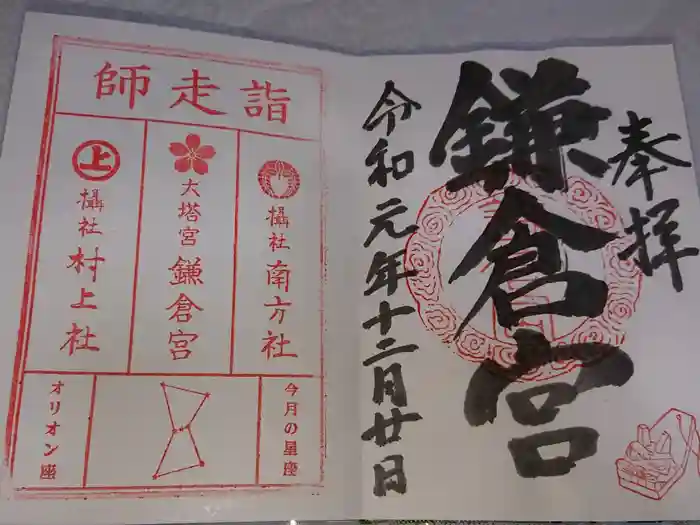 奉拝
鎌倉宮
令和元年十二月廿日
師走詣
攝社 南方社
大塔宮 鎌倉宮
上
攝社 村上社
今月の星座
オリオン座